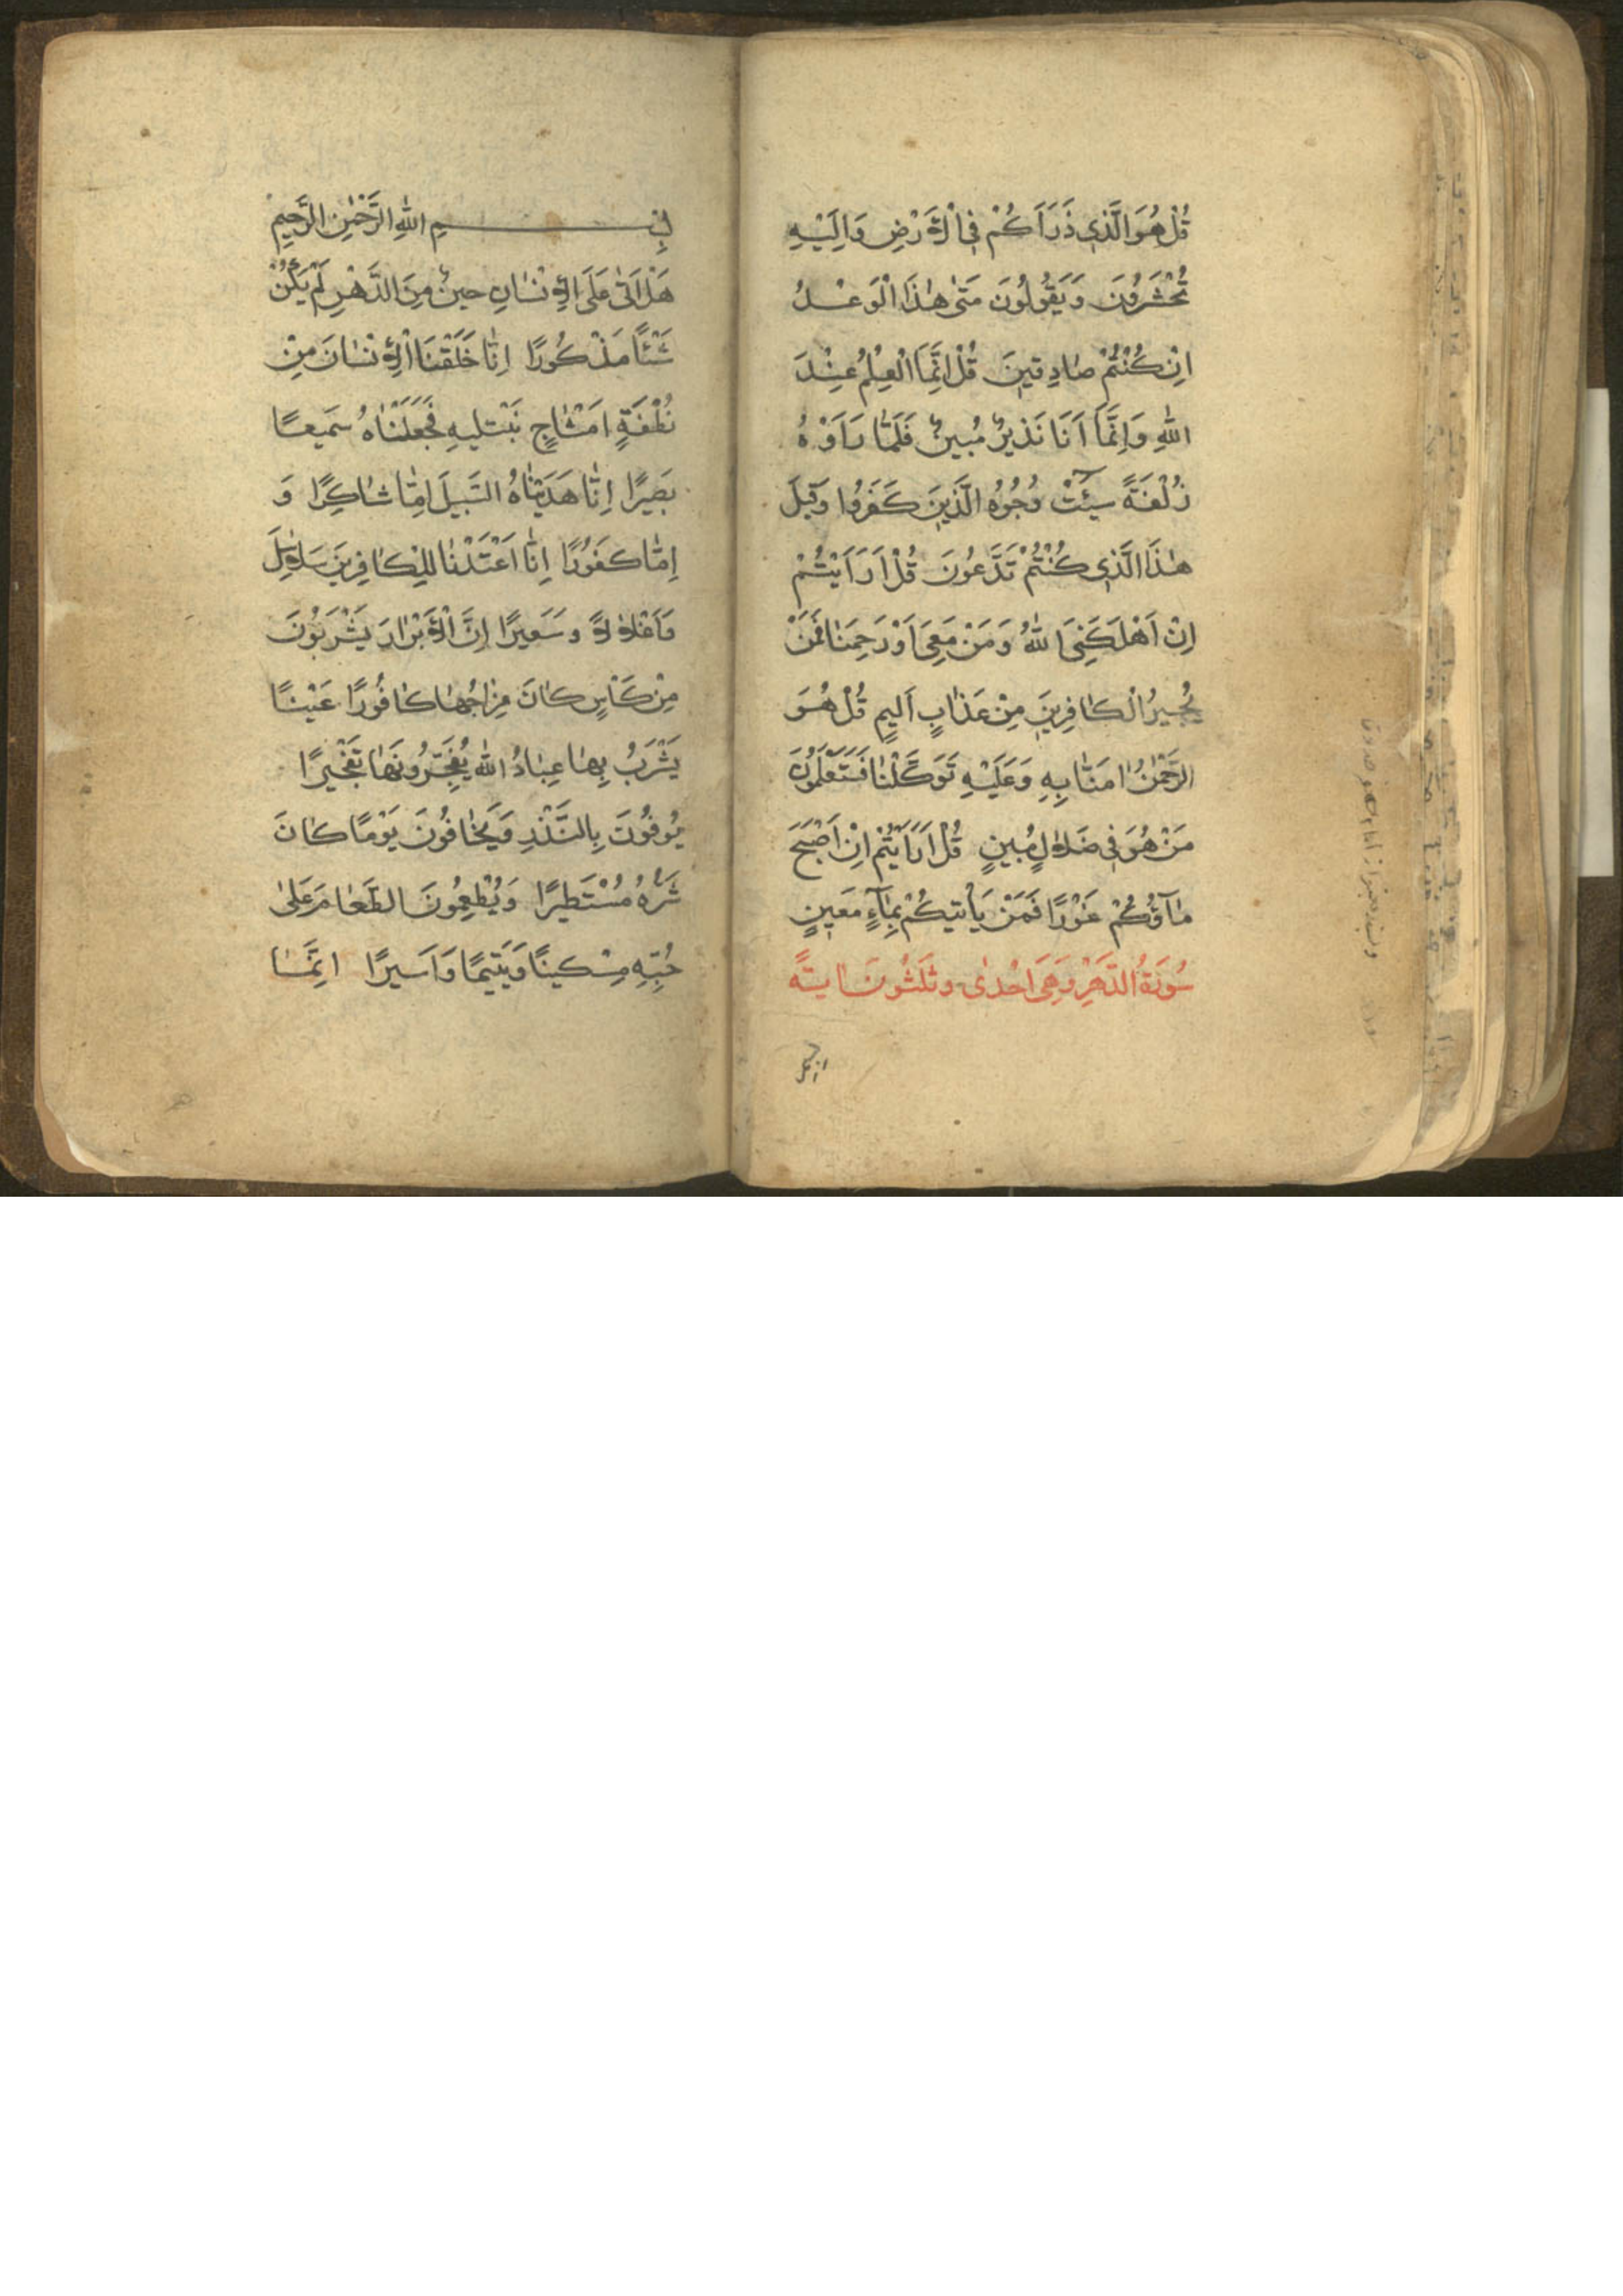 قُلْ هُوَ الَّذِي ذَرَاَكُمْ فِي الْاَرْضِ وَاِلَيْهِ
تُحْشَرُونَ وَيَقُولُونَ مَتٰى هٰذَا الْوَعْدُ
اِنْ كُنْتُمْ صَادِقِينَ قُلْ اِنَّمَا الْعِلْمُ عِنْدَ
اللّٰهِ وَاِنَّمَا اَنَا نَذِيرٌ مُبِينٌ فَلَمَّا رَاَوْهُ
زُلْفَةً سِيئَتْ وُجُوهُ الَّذِينَ كَفَرُوا وَقِيلَ
هٰذَا الَّذِي كُنْتُمْ تَدَّعُونَ قُلْ اَرَاَيْتُمْ
اِنْ اَهْلَكَنِيَ اللّٰهُ وَمَنْ مَعِيَ اَوْ رَحِمَنَا فَمَنْ
يُجِيرُ الْكَافِرِينَ مِنْ عَذَابٍ اَلِيمٍ قُلْ هُوَ
الرَّحْمٰنُ اٰمَنَّا بِهِ وَعَلَيْهِ تَوَكَّلْنَا فَسَتَعْلَمُونَ
مَنْ هُوَ فِي ضَلَالٍ مُبِينٍ قُلْ اَرَاَيْتُمْ اِنْ اَصْبَحَ
مَآؤُكُمْ غَوْرًا فَمَنْ يَاْتِيكُمْ بِمَآءٍ مَعِينٍ
سُورَةُ الدَّهْرِ وَهِيَ اِحْدٰى وثَلٰثُونَ اٰيَةً
بِسْمِ اللّٰهِ الرَّحْمٰنِ الرَّحِيمِ
هَلْ اَتٰى عَلَى الْاِنْسَانِ حِينٌ مِنَ الدَّهْرِ لَمْ يَكُنْ
شَيْئًا مَذْكُورًا اِنَّا خَلَقْنَا الْاِنْسَانَ مِنْ
نُطْفَةٍ اَمْشَاجٍ نَبْتَلِيهِ فَجَعَلْنَاهُ سَمِيعًا
بَصِيرًا اِنَّا هَدَيْنَاهُ السَّبِيلَ اِمَّا شَاكِرًا وَ
اِمَّا كَفُورًا اِنَّا اَعْتَدْنَا لِلْكَافِرِينَ سَلَاسِلَ
وَاَغْلَالًا وسَعِيرًا اِنَّ الْاَبْرَارَ يَشْرَبُونَ
مِنْ كَاْسٍ كَانَ مِزَاجُهَا كَافُورًا عَيْنًا
يَشْرَبُ بِهَا عِبَادُ اللّٰه يُفَجِّرُونَهَا تَفْجِيرًا
يُوفُونَ بِالنَّذْرِ وَيَخَافُونَ يَوْمًا كَانَ
شَرُّهُ مُسْتَطِيرًا وَيُطْعِمُونَ الطَّعَامَ عَلٰى
حُبِّهِ مِسْكِينًا وَيَتِيمًا وَاَسِيرًا اِنَّمَا